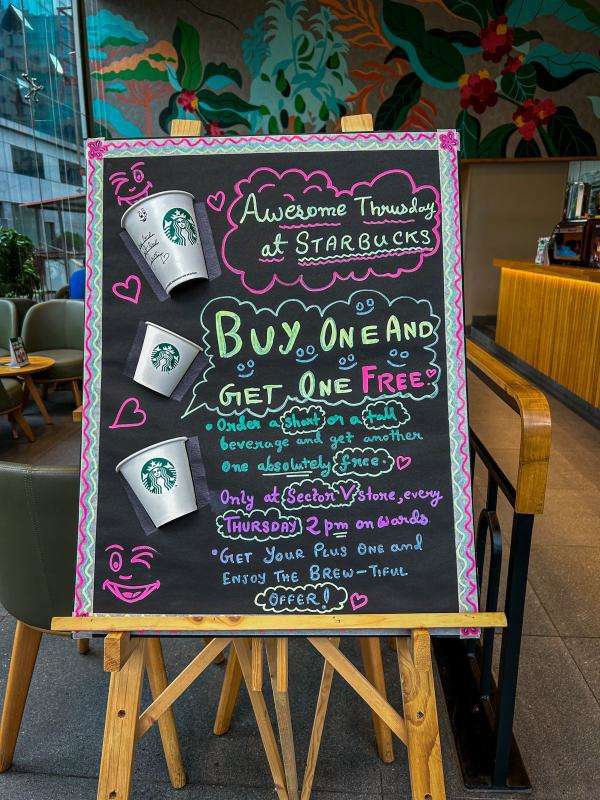 Awesome Thrusday
at STARBUCKS
BUY ONE AND
GET ONE FREE
Order a short or a tall
beverage and get another
one absolutely free.
Only at Sector V store, every
THURSDAY 2 pm onwards
GET YOUR PLUS ONE and
ENJOY THE BREW-TIFUL
OFFER!